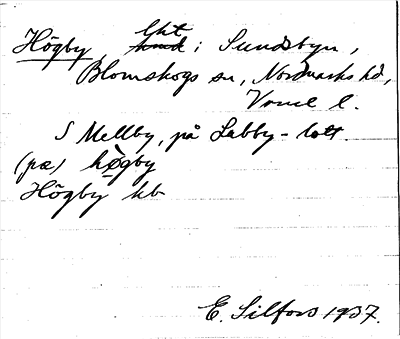 Högby, lht i Sundsbyn,
Blomskogs sn, Nordmarks hd,
Värml l.
S Mellby, på Labby-tott.
(pæ) hø̀gby
Högby kb
E. Silfors 1937.